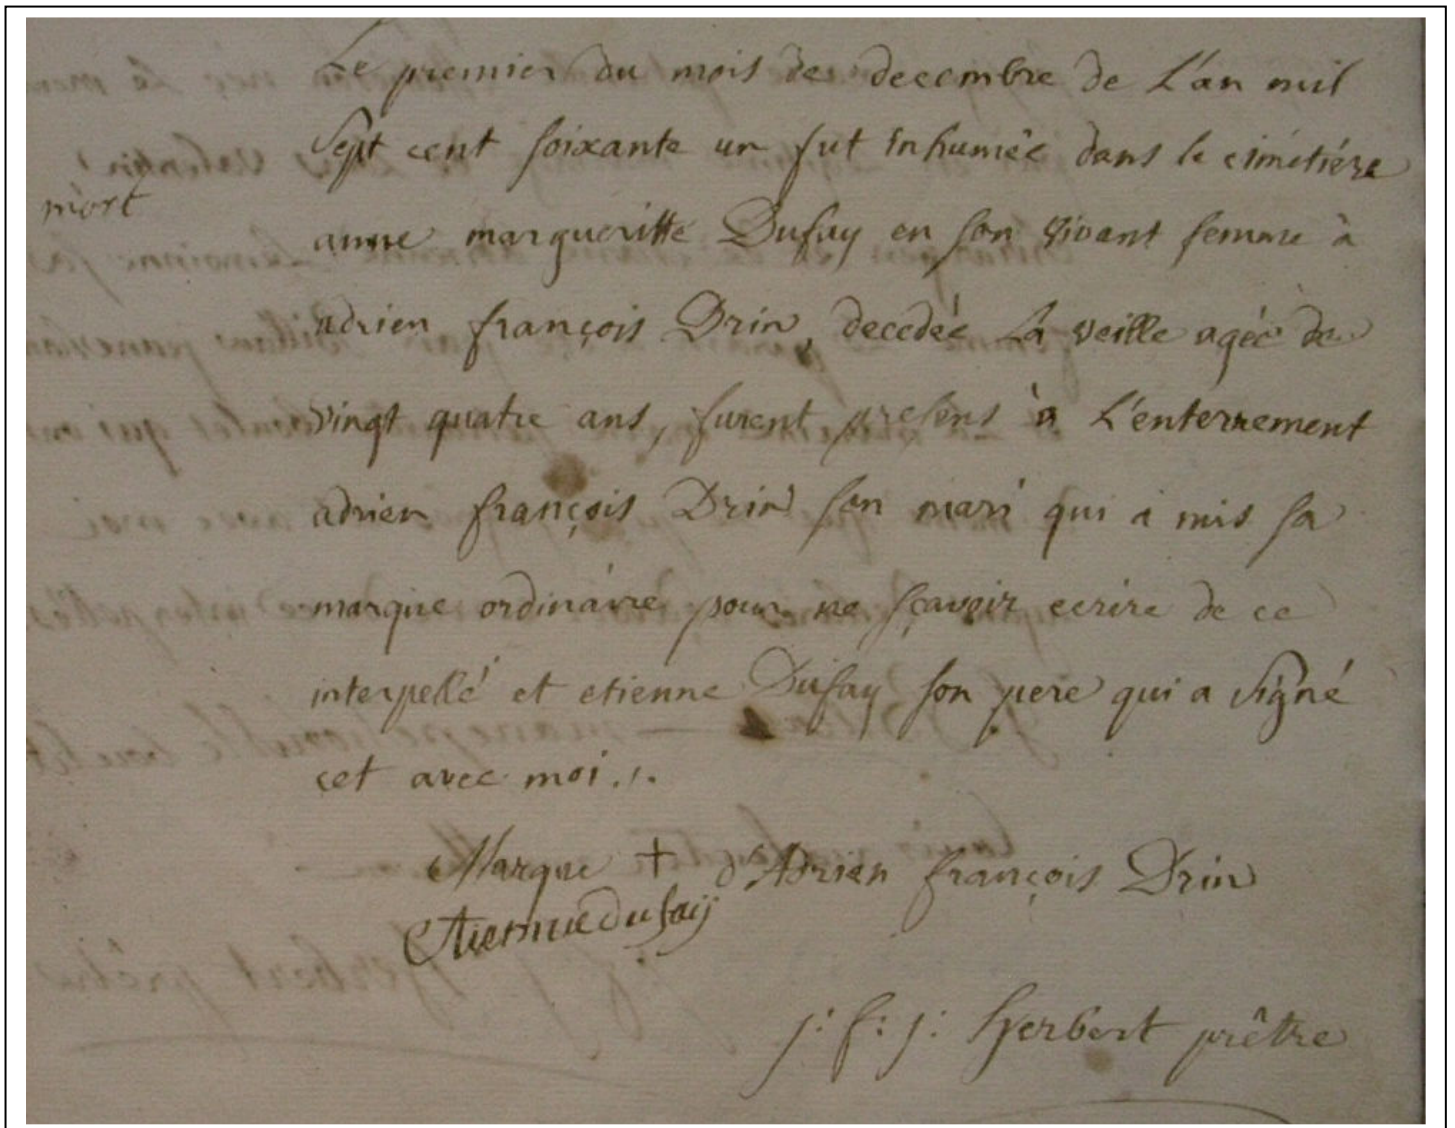 Le premier du mois de decembre de L'an mil
Sept cent soixante un fut inhumée dans le cimétiére
mort
anne margueritte Dufay en son vivant femme à
adrien françois Drin, decedée La veille agée de
vingt quatre ans, furent presens à L'enterrement
adrien françois Drin son mari qui a mis sa
marque ordinaire pour ne sçavoir ecrire de ce
interpellé et etienne Dufay son pere qui a signé
cet avec moi ./.
Marque + d'Adrien françois Drin
Etienne dufaÿ
j: f: j: herbert prêtre